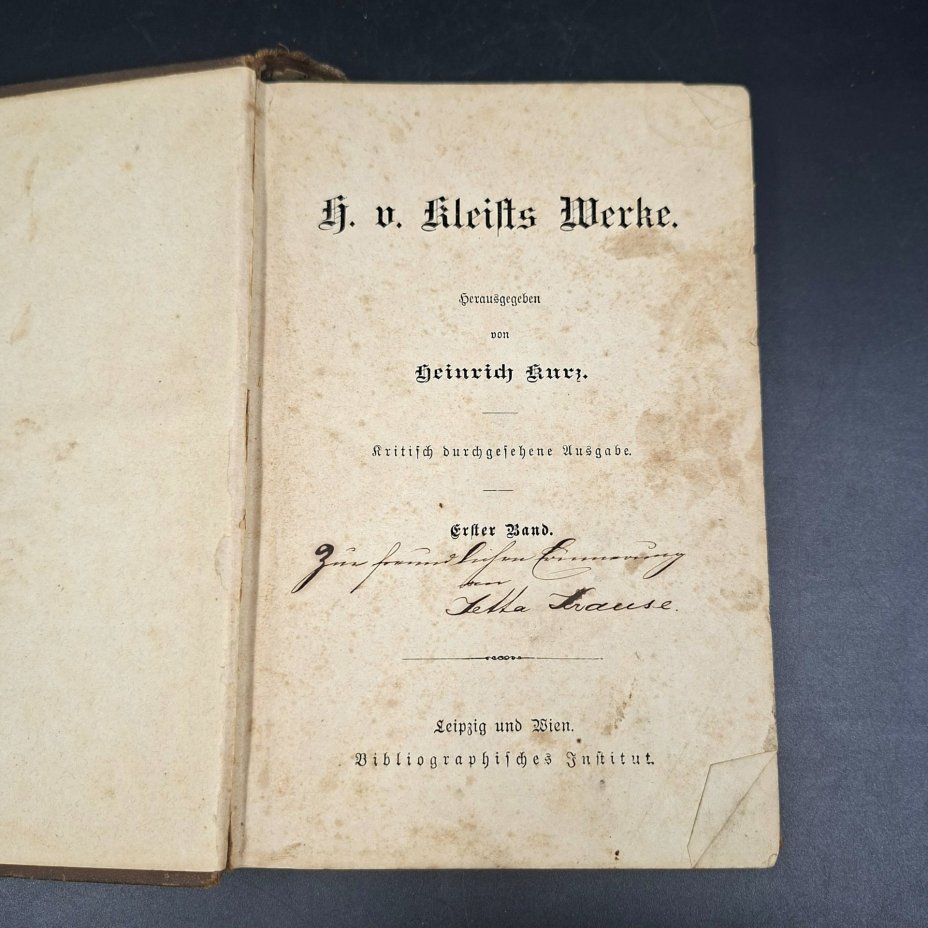 H. v. Kleists Werke.
Herausgegeben
von
Heinrich Kurz.
Kritisch durchgesehene Ausgabe.
Erster Band.
Zur freundlichen Erinnerung
von
Jetta Krause.
Leipzig und Wien.
Bibliographisches Institut.